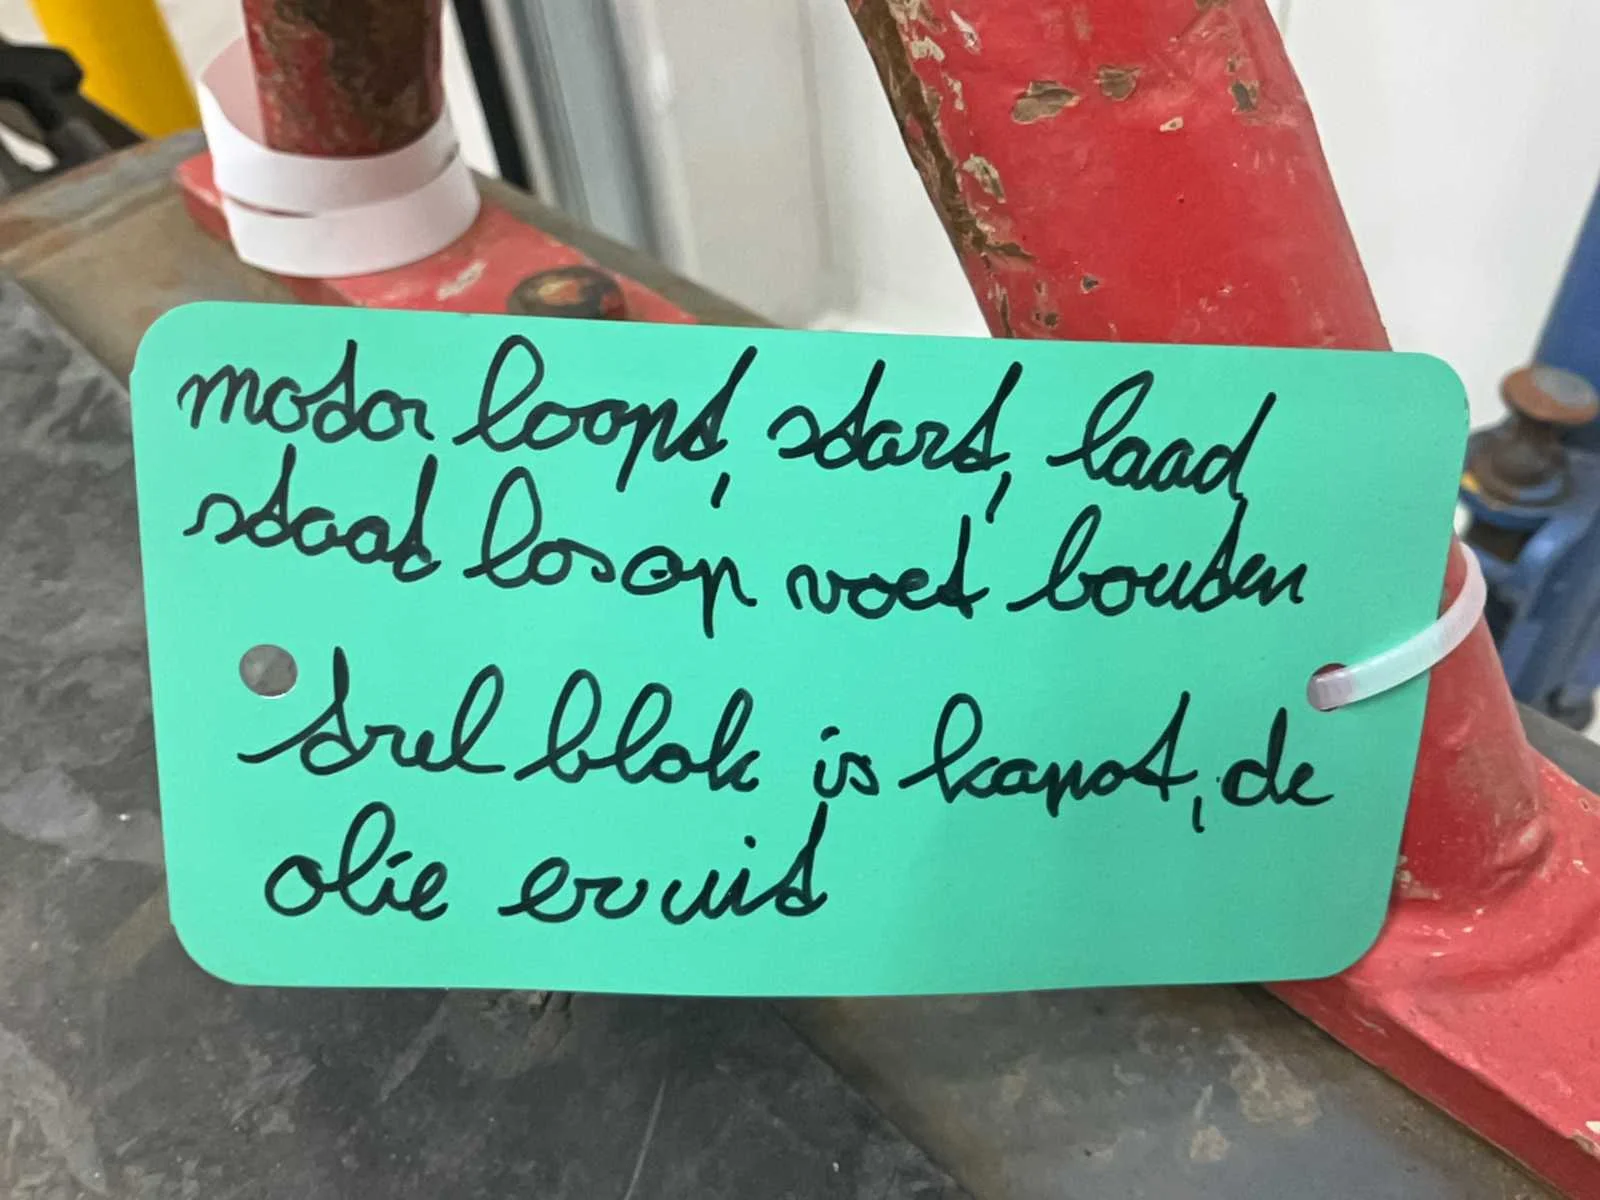 motor loopt, start, laad
staat los op voet bouten
tril blok is kapot, de
olie eruit